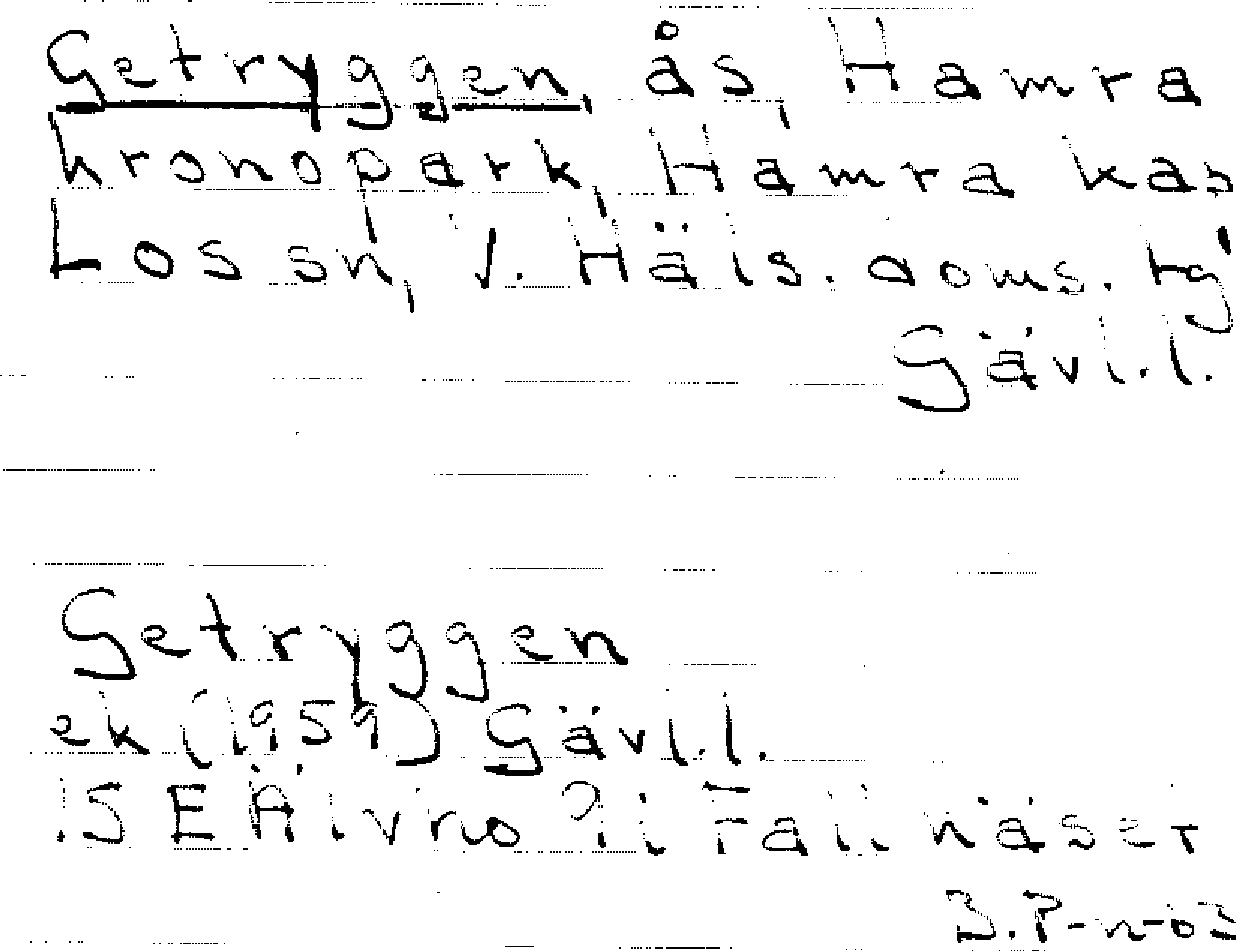 Getryggen, ås, Hamra
kronopark, Hamra kap
Los sn, V. Häls. doms. tg
Gävl.l.
Getryggen
ek (1959) Gävl.l.
SE i Fall näset